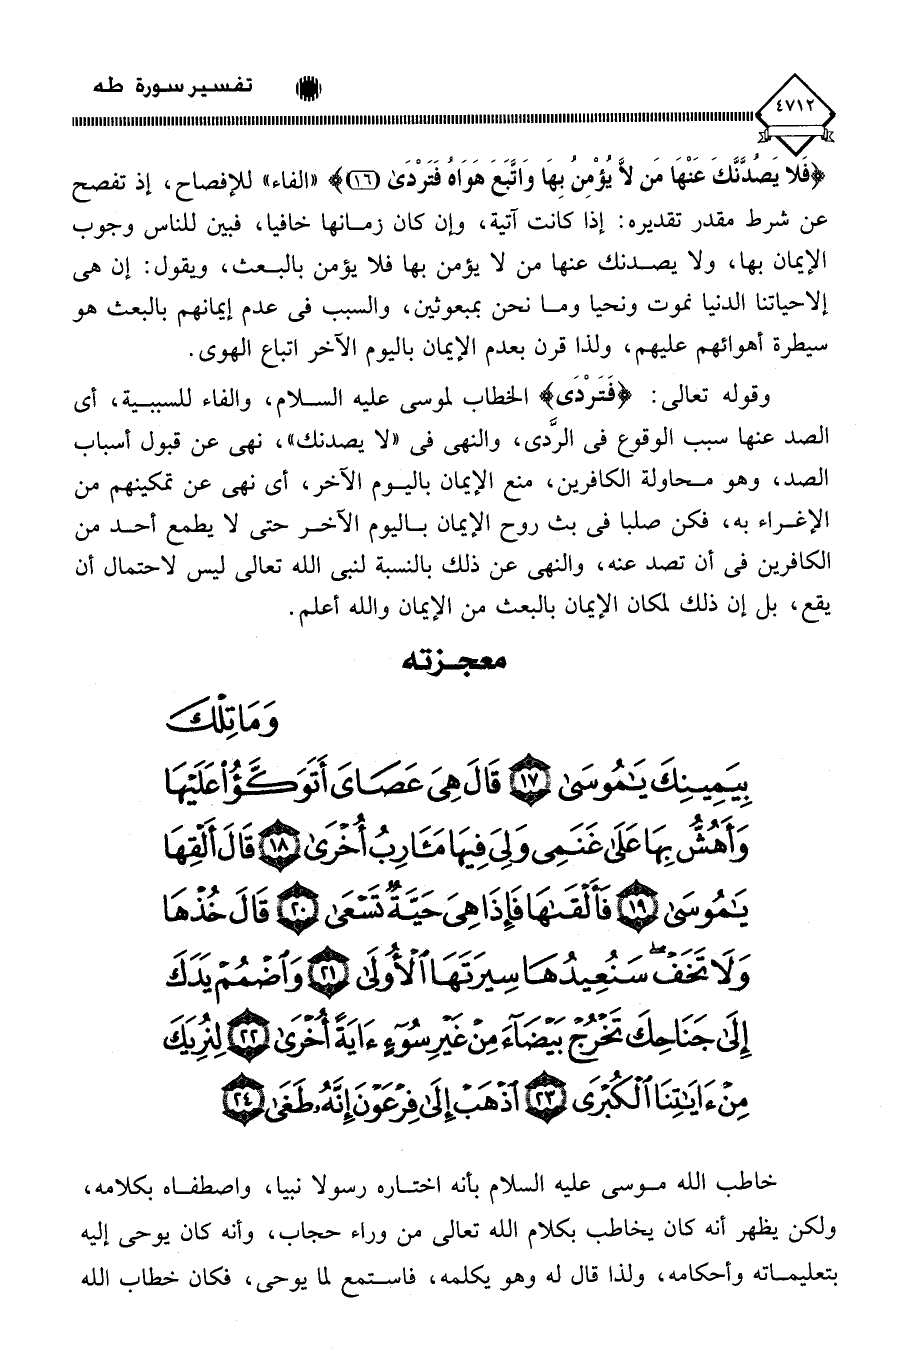 ٤٧١٢ تفسير سورة طه
﴿فَلا يَصُدَّنَّكَ عَنْهَا مَن لاَّ يُؤْمِنُ بِهَا وَاتَّبَعَ هَوَاهُ فَتَرْدَىٰ (١٦)﴾ «الفاء» للإفصاح، إذ تفصح
عن شرط مقدر تقديره: إذا كانت آتية، وإن كان زمانها خافيا، فبين للناس وجوب
الإيمان بها، ولا يصدنك عنها من لا يؤمن بها فلا يؤمن بالبعث، ويقول: إن هى
إلاحياتنا الدنيا نموت ونحيا وما نحن بمبعوثين، والسبب فى عدم إيمانهم بالبعث هو
سيطرة أهوائهم عليهم، ولذا قرن بعدم الإيمان باليوم الآخر اتباع الهوى.
وقوله تعالى: ﴿فَتَرْدَى﴾ الخطاب لموسى عليه السلام، والفاء للسببية، أى
الصد عنها سبب الوقوع فى الردَّى، والنهى فى «لا يصدنك»، نهى عن قبول أسباب
الصد، وهو محاولة الكافرين، منع الإيمان باليوم الآخر، أى نهى عن تمكينهم من
الإغراء به، فكن صلبا فى بث روح الإيمان باليوم الآخر حتى لا يطمع أحد من
الكافرين فى أن تصد عنه، والنهى عن ذلك بالنسبة لنبى الله تعالى ليس لاحتمال أن
يقع، بل إن ذلك لمكان الإيمان بالبعث من الإيمان والله أعلم.
معجزته
وَمَا تِلْكَ
بِيَمِينِكَ يَٰمُوسَىٰ ١٧ قَالَ هِىَ عَصَاىَ أَتَوَكَّؤُا۟ عَلَيْهَا
وَأَهُشُّ بِهَا عَلَىٰ غَنَمِى وَلِىَ فِيهَا مَـَٔارِبُ أُخْرَىٰ ١٨ قَالَ أَلْقِهَا
يَٰمُوسَىٰ ١٩ فَأَلْقَىٰهَا فَإِذَا هِىَ حَيَّةٌ تَسْعَىٰ ٢٠ قَالَ خُذْهَا
وَلَا تَخَفْ ۖ سَنُعِيدُهَا سِيرَتَهَا ٱلْأُولَىٰ ٢١ وَٱضْمُمْ يَدَكَ
إِلَىٰ جَنَاحِكَ تَخْرُجْ بَيْضَآءَ مِنْ غَيْرِ سُوٓءٍ ءَايَةً أُخْرَىٰ ٢٢ لِنُرِيَكَ
مِنْ ءَايَٰتِنَا ٱلْكُبْرَى ٢٣ ٱذْهَبْ إِلَىٰ فِرْعَوْنَ إِنَّهُۥ طَغَىٰ ٢٤
خاطب الله موسى عليه السلام بأنه اختاره رسولا نبيا، واصطفاه بكلامه،
ولكن يظهر أنه كان يخاطب بكلام الله تعالى من وراء حجاب، وأنه كان يوحى إليه
بتعليماته وأحكامه، ولذا قال له وهو يكلمه، فاستمع لما يوحى، فكان خطاب الله